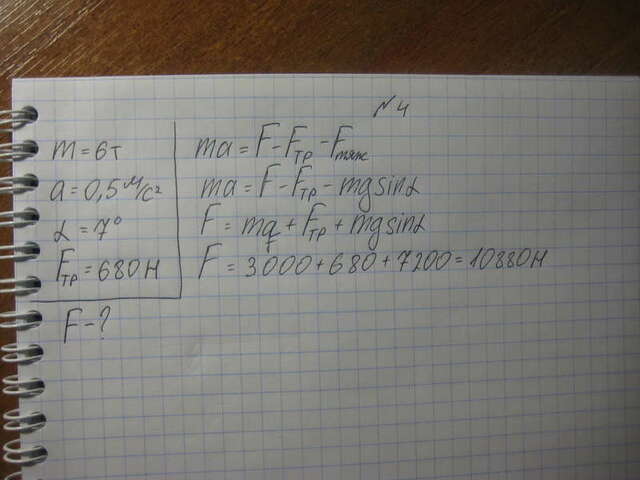 №4
m = 6т
a = 0,5 м/с²
α = 7°
Fтр = 680Н
F - ?
ma = F - Fтр - Fтяж
ma = F - Fтр - mg sinα
F = ma + Fтр + mg sinα
F = 3000 + 680 + 7200 = 10880Н